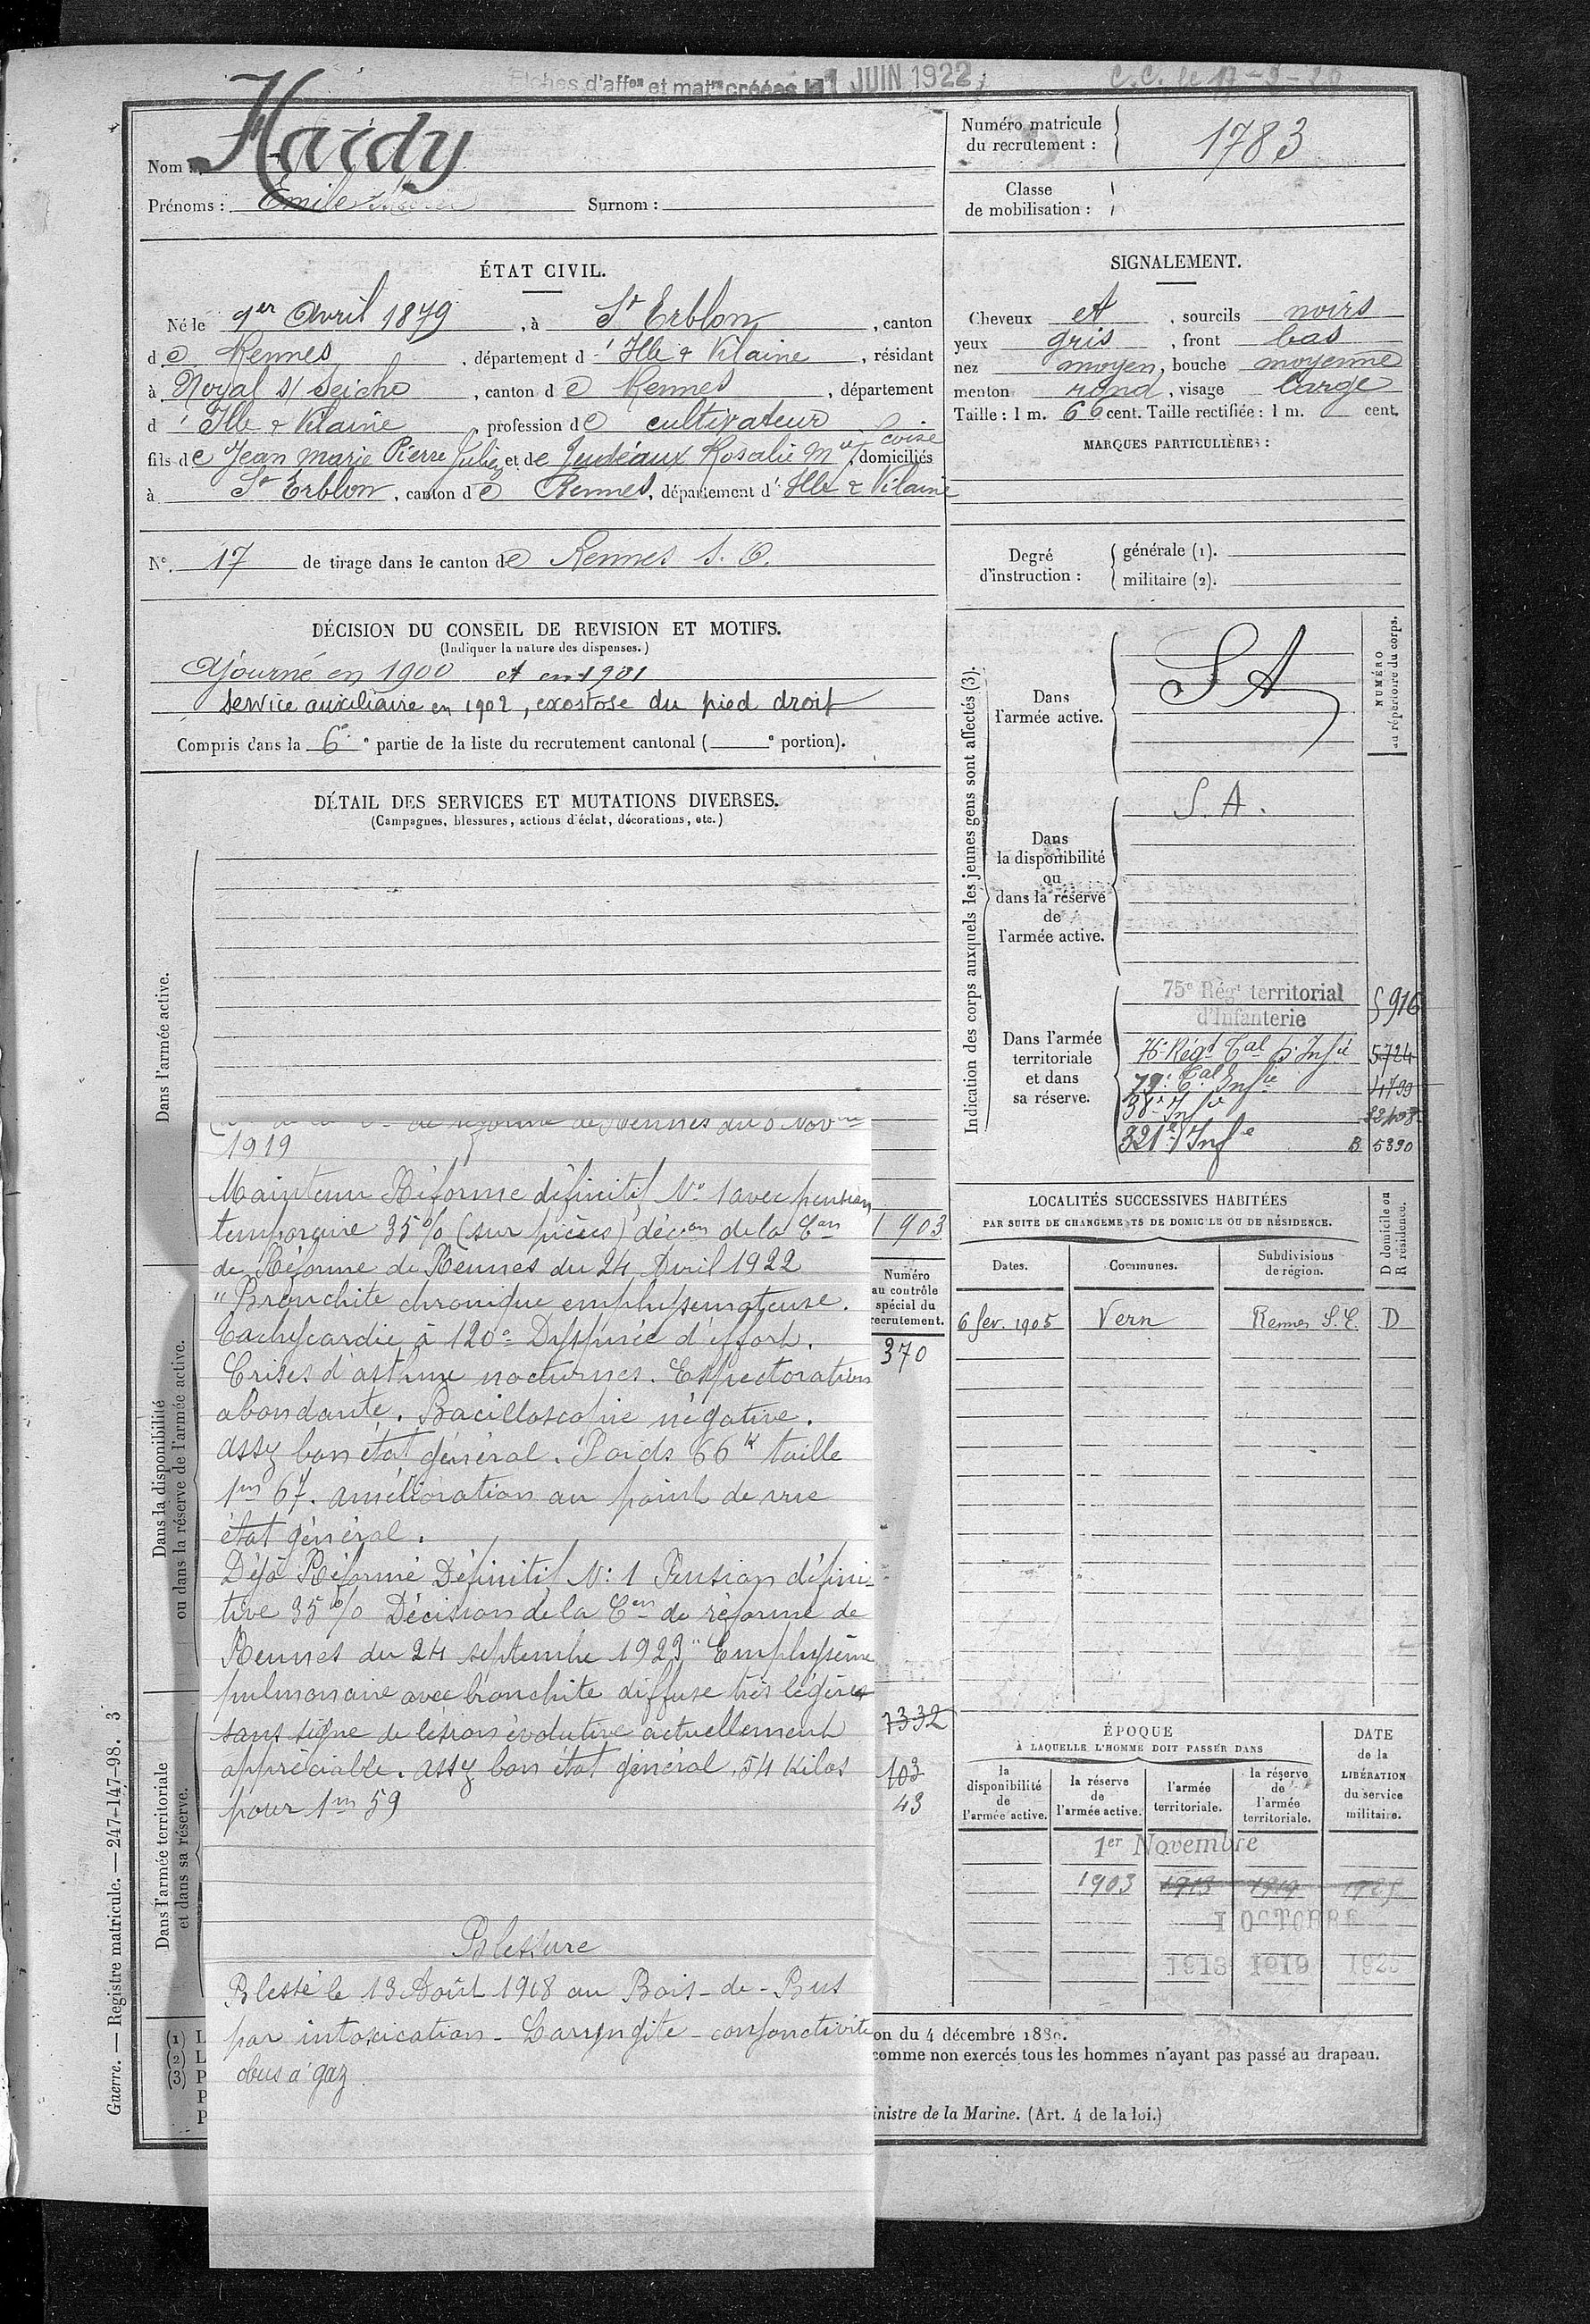 Fiches d'affon et matre créées le 1 JUIN 1922
C.C. le 17-9-20
Nom : Hardy
Prénoms : Emile Surnom :
Numéro matricule
du recrutement : 1783
Classe
de mobilisation :
ÉTAT CIVIL.
Né le 1er Avril 1879, à St Erblon, canton
de Rennes, département d'Ille & Vilaine, résidant
à Noyal s/ Seiche, canton de Rennes, département
d'Ille & Vilaine, profession de cultivateur
fils de Jean Marie Pierre Julien et de Jeudéaux Rosalie Mie fçoise, domiciliés
à St Erblon, canton de Rennes, département d'Ille & Vilaine
N° 17 de tirage dans le canton de Rennes S. O.
SIGNALEMENT.
Cheveux et, sourcils noirs
yeux gris, front bas
nez moyen, bouche moyenne
menton rond, visage large
Taille : 1 m. 66 cent. Taille rectifiée : 1 m. cent.
MARQUES PARTICULIÈRES :
Degré
d'instruction :
générale (1).
militaire (2).
DÉCISION DU CONSEIL DE REVISION ET MOTIFS.
(Indiquer la nature des dispenses.)
Ajourné en 1900 et en 1901
Service auxiliaire en 1902, exostose du pied droit
Compris dans la 6e partie de la liste du recrutement cantonal ( e portion).
DÉTAIL DES SERVICES ET MUTATIONS DIVERSES.
(Campagnes, blessures, actions d'éclat, décorations, etc.)
Dans l'armée active.
Dans la disponibilité
ou dans la réserve de l'armée active.
Dans l'armée territoriale
et dans sa réserve.
de réforme de Rennes du 5 Novbre
1919
Maintenu Réforme définitif N° 1 avec pension
temporaire 35% (sur pièces) décon de la Con
de Réforme de Rennes du 24 Avril 1922
"Bronchite chronique emphysemateuse.
Tachycardie à 120° Dyspnée d'effort.
Crises d'asthme nocturnes. Expectoration
abondante. Bacilloscopie négative.
assez bon état général. Poids 66k taille
1m 67. amélioration au point de vue
état général.
Déjà Réformé Définitif N° 1 Pension défini-
tive 35% Décision de la Con de réforme de
Rennes du 24 septembre 1923 "Emphysème
pulmonaire avec bronchite diffuse très légère
sans signe de lésion évolutive actuellement
appréciable. assez bon état général. 54 kilos
pour 1m 59
Blessure
Blessé le 13 Août 1918 au Bois-de-Bus
par intoxication - Laryngite - conjonctivite
obus à gaz
1903
Numéro
au contrôle
spécial du
recrutement.
370
7332
103
43
Indication des corps auxquels les jeunes gens sont affectés (3).
NUMÉRO
au répertoire du corps.
Dans
l'armée active.
S A
Dans
la disponibilité
ou
dans la réserve
de
l'armée active.
S. A.
Dans l'armée
territoriale
et dans
sa réserve.
75e Régt territorial
d'Infanterie
5916
76e Régt Tal d'Infie 5724
79e Tal Infie 4799
38e Infie 22408
321e Infie B 5390
LOCALITÉS SUCCESSIVES HABITÉES
PAR SUITE DE CHANGEMENTS DE DOMICILE OU DE RÉSIDENCE.
D domicile ou
R résidence.
Dates. Communes. Subdivisions
de région.
6 fev. 1905 Vern Rennes S. E. D
ÉPOQUE
À LAQUELLE L'HOMME DOIT PASSER DANS
la
disponibilité
de
l'armée active.
la réserve
de
l'armée active.
l'armée
territoriale.
la réserve
de
l'armée
territoriale.
DATE
de la
LIBÉRATION
du service
militaire.
1er Novembre
1903 1913 1919
1 OCTOBRE
1918 1919
(1) L
(2) L
(3) P
P
P
on du 4 décembre 1889.
comme non exercés tous les hommes n'ayant pas passé au drapeau.
inistre de la Marine. (Art. 4 de la loi.)
Guerre. — Registre matricule. — 247-147-98. 3